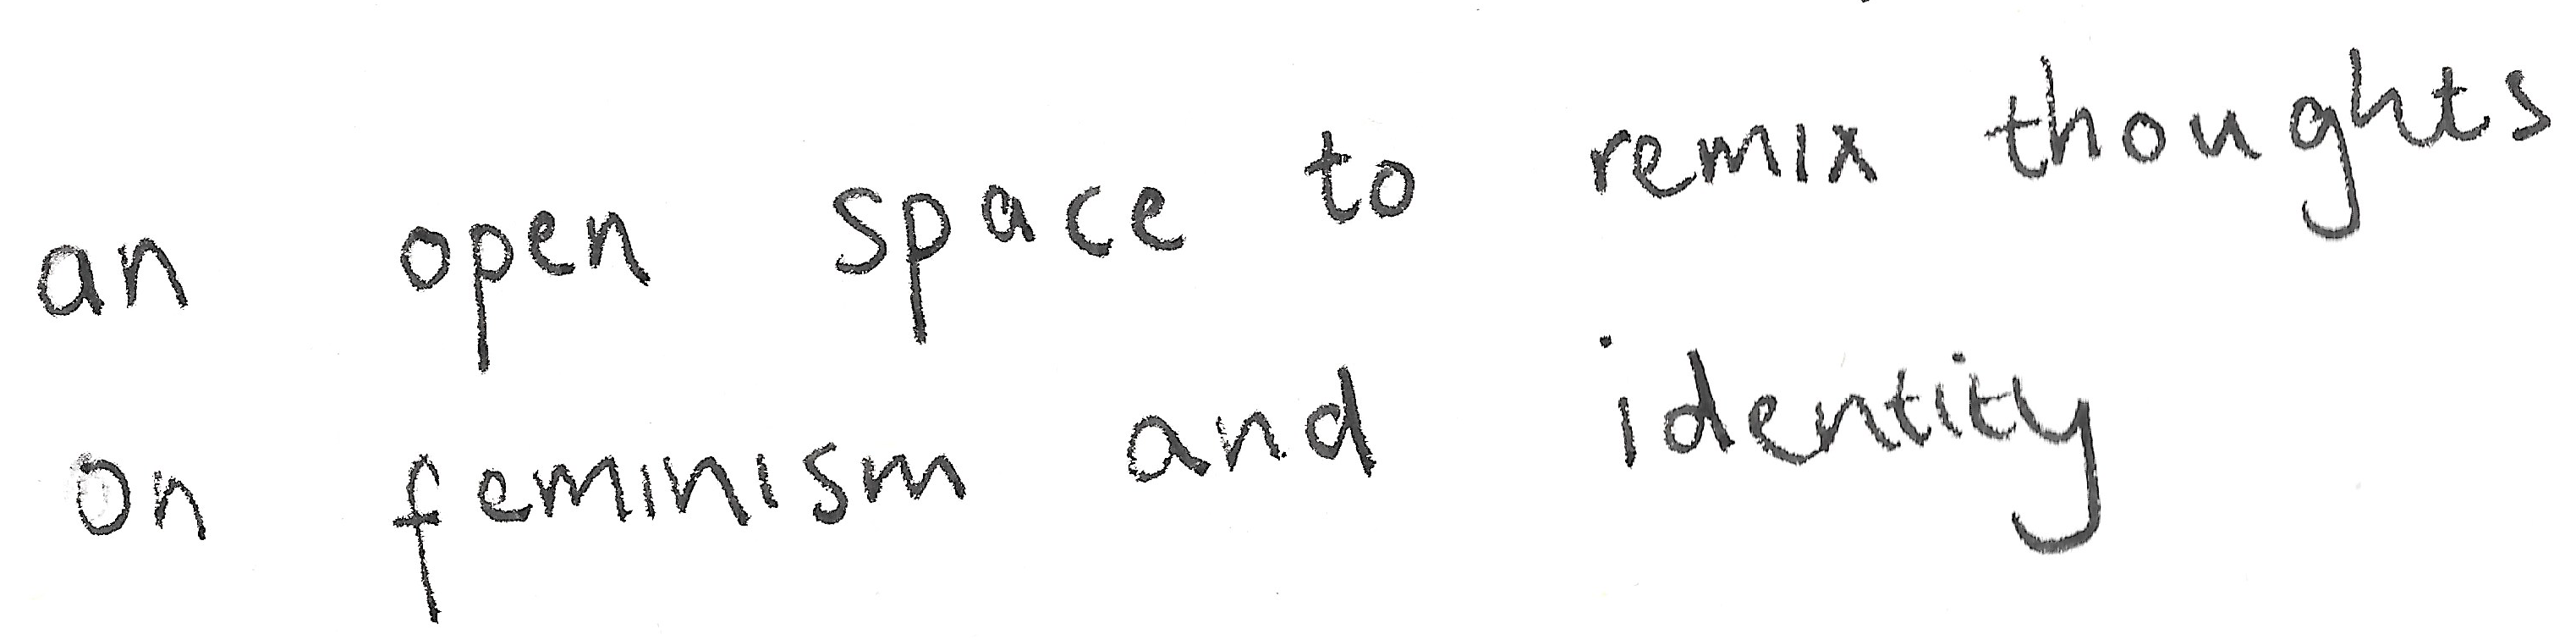 an open space to remix thoughts
on feminism and identity